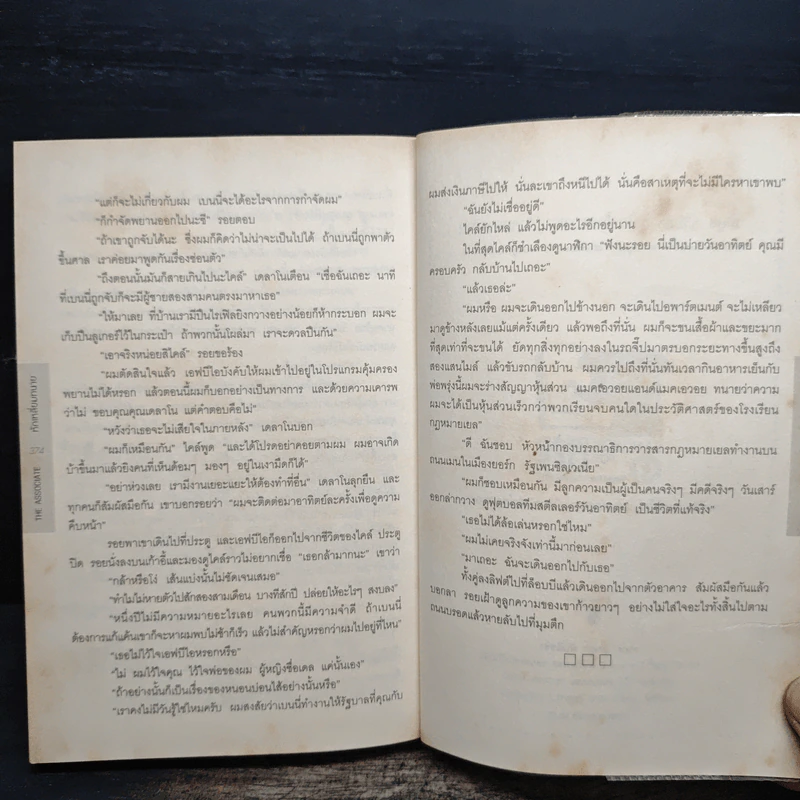 "แต่ก็จะไม่เกี่ยวกับผม เบนนี่จะได้อะไรจากการกำจัดผม"
"ก็กำจัดพยานออกไปนะซี" รอยตอบ
"ถ้าเขาถูกจับได้นะ ซึ่งผมก็คิดว่าไม่น่าจะเป็นไปได้ ถ้าเบนนี่ถูกพาตัว
ขึ้นศาล เราค่อยมาพูดกันเรื่องซ่อนตัว"
"ถึงตอนนั้นมันก็สายเกินไปนะไคล์" เดลาโนเตือน "เชื่อฉันเถอะ นาที
ที่เบนนี่ถูกจับก็จะมีผู้ชายสองสามคนตรงมาหาเธอ"
"ให้มาเลย ที่บ้านเรามีปืนไรเฟิลยิงกวางอย่างน้อยก็ห้ากระบอก ผมจะ
เก็บปืนลูเกอร์ไว้ในกระเป๋า ถ้าพวกนั้นโผล่มา เราจะดวลปืนกัน"
"เอาจริงหน่อยสิไคล์" รอยขอร้อง
"ผมตัดสินใจแล้ว เอฟบีไอบังคับให้ผมเข้าไปอยู่ในโปรแกรมคุ้มครอง
พยานไม่ได้หรอก แล้วตอนนี้ผมก็บอกอย่างเป็นทางการ และด้วยความเคารพ
ว่าไม่ ขอบคุณคุณเดลาโน แต่คำตอบคือไม่"
"หวังว่าเธอจะไม่เสียใจในภายหลัง" เดลาโนบอก
"ผมก็เหมือนกัน" ไคล์พูด "และได้โปรดอย่าคอยตามผม ผมอาจเกิด
บ้าขึ้นมาแล้วยิงคนที่เห็นด้อมๆ มองๆ อยู่ในเงามืดก็ได้"
"อย่าห่วงเลย เรามีงานเยอะแยะให้ต้องทำที่อื่น" เดลาโนลุกยืน และ
ทุกคนก็สัมผัสมือกัน เขาบอกรอยว่า "ผมจะติดต่อมาอาทิตย์ละครั้งเพื่อดูความ
คืบหน้า"
รอยพาเขาเดินไปที่ประตู และเอฟบีไอก็ออกไปจากชีวิตของไคล์ ประตู
ปิด รอยนั่งลงบนเก้าอี้และมองดูไคล์ราวไม่อยากเชื่อ "เธอกล้ามากนะ" เขาว่า
"กล้าหรือโง่ เส้นแบ่งนั้นไม่ชัดเจนเสมอ"
"ทำไมไม่หายตัวไปสักสองสามเดือน บางทีสักปี ปล่อยให้อะไรๆ สงบลง"
"หนึ่งปีไม่มีความหมายอะไรเลย คนพวกนี้มีความจำดี ถ้าเบนนี่
ต้องการแก้แค้นเขาก็จะหาผมพบไม่ช้าก็เร็ว แล้วไม่สำคัญหรอกว่าผมไปอยู่ที่ไหน"
"เธอไม่ไว้ใจเอฟบีไอหรอกหรือ"
"ไม่ ผมไว้ใจคุณ ไว้ใจพ่อของผม ผู้หญิงชื่อเดล แค่นั้นเอง"
"ถ้าอย่างนั้นก็เป็นเรื่องของหนอนบ่อนไส้อย่างนั้นหรือ"
"เราคงไม่มีวันรู้ใช่ไหมครับ ผมสงสัยว่าเบนนี่ทำงานให้รัฐบาลที่คุณกับ
หักเหลี่ยมทนาย
274
THE ASSOCIATE
ผมส่งเงินภาษีไปให้ นั่นละเขาถึงหนีไปได้ นั่นคือสาเหตุที่จะไม่มีใครหาเขาพบ"
"ฉันยังไม่เชื่ออยู่ดี"
ไคล์ยักไหล่ แล้วไม่พูดอะไรอีกอยู่นาน
ในที่สุดไคล์ก็ชำเลืองดูนาฬิกา "ฟังนะรอย นี่เป็นบ่ายวันอาทิตย์ คุณมี
ครอบครัว กลับบ้านไปเถอะ"
"แล้วเธอล่ะ"
"ผมหรือ ผมจะเดินออกไปข้างนอก จะเดินไปอพาร์ตเมนต์ จะไม่เหลียว
มาดูข้างหลังเลยแม้แต่ครั้งเดียว แล้วพอถึงที่นั่น ผมก็จะขนเสื้อผ้าและขยะมาก
ที่สุดเท่าที่จะขนได้ ยัดทุกสิ่งทุกอย่างลงในรถจี๊ปมาตรบอกระยะทางขึ้นสูงถึง
สองแสนไมล์ แล้วขับรถกลับบ้าน ผมควรไปถึงที่นั่นทันเวลากินอาหารเย็นกับ
พ่อพรุ่งนี้ผมจะร่างสัญญาหุ้นส่วน แมคอะวอยแอนด์แมคเอวอย ทนายความ
ผมจะได้เป็นหุ้นส่วนเร็วกว่าพวกเรียนจบคนใดในประวัติศาสตร์ของโรงเรียน
กฎหมายเยล"
"ดี ฉันชอบ หัวหน้ากองบรรณาธิการวารสารกฎหมายเยลทำงานบน
ถนนเมนในเมืองยอร์ก รัฐเพนซิลเวเนีย"
"ผมก็ชอบเหมือนกัน มีลูกความเป็นผู้เป็นคนจริงๆ มีคดีจริงๆ วันเสาร์
ออกล่ากวาง ดูฟุตบอลทีมสตีลเลอร์วันอาทิตย์ เป็นชีวิตที่แท้จริง"
"เธอไม่ได้ล้อเล่นหรอกใช่ไหม"
"ผมไม่เคยจริงจังเท่านี้มาก่อนเลย"
"มาเถอะ ฉันจะเดินออกไปกับเธอ"
ทั้งคู่ลงลิฟต์ไปที่ล็อบบีแล้วเดินออกไปจากตัวอาคาร สัมผัสมือกันแล้ว
บอกลา รอยเฝ้าดูลูกความของเขาก้าวยาวๆ อย่างไม่ใส่ใจอะไรทั้งสิ้นไปตาม
ถนนบรอดแล้วหายลับไปที่มุมตึก